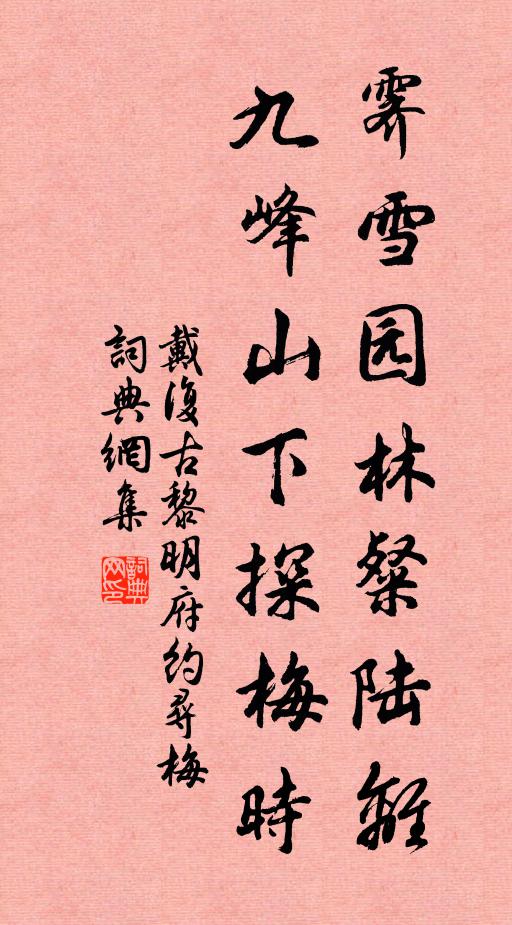 霁雪园林粲陆離
九峰山下探梅時
戴復古黎明府約尋梅
詞典網集
詞典网印